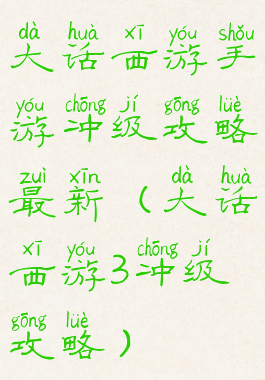 dà huà xī yóu shǒu
大话西游手
yóu chōng jí gōng lüè
游冲级攻略
zuì xīn dà huà
最新(大话
xī yóu chōng jí
西游3冲级
gōng lüè
攻略)